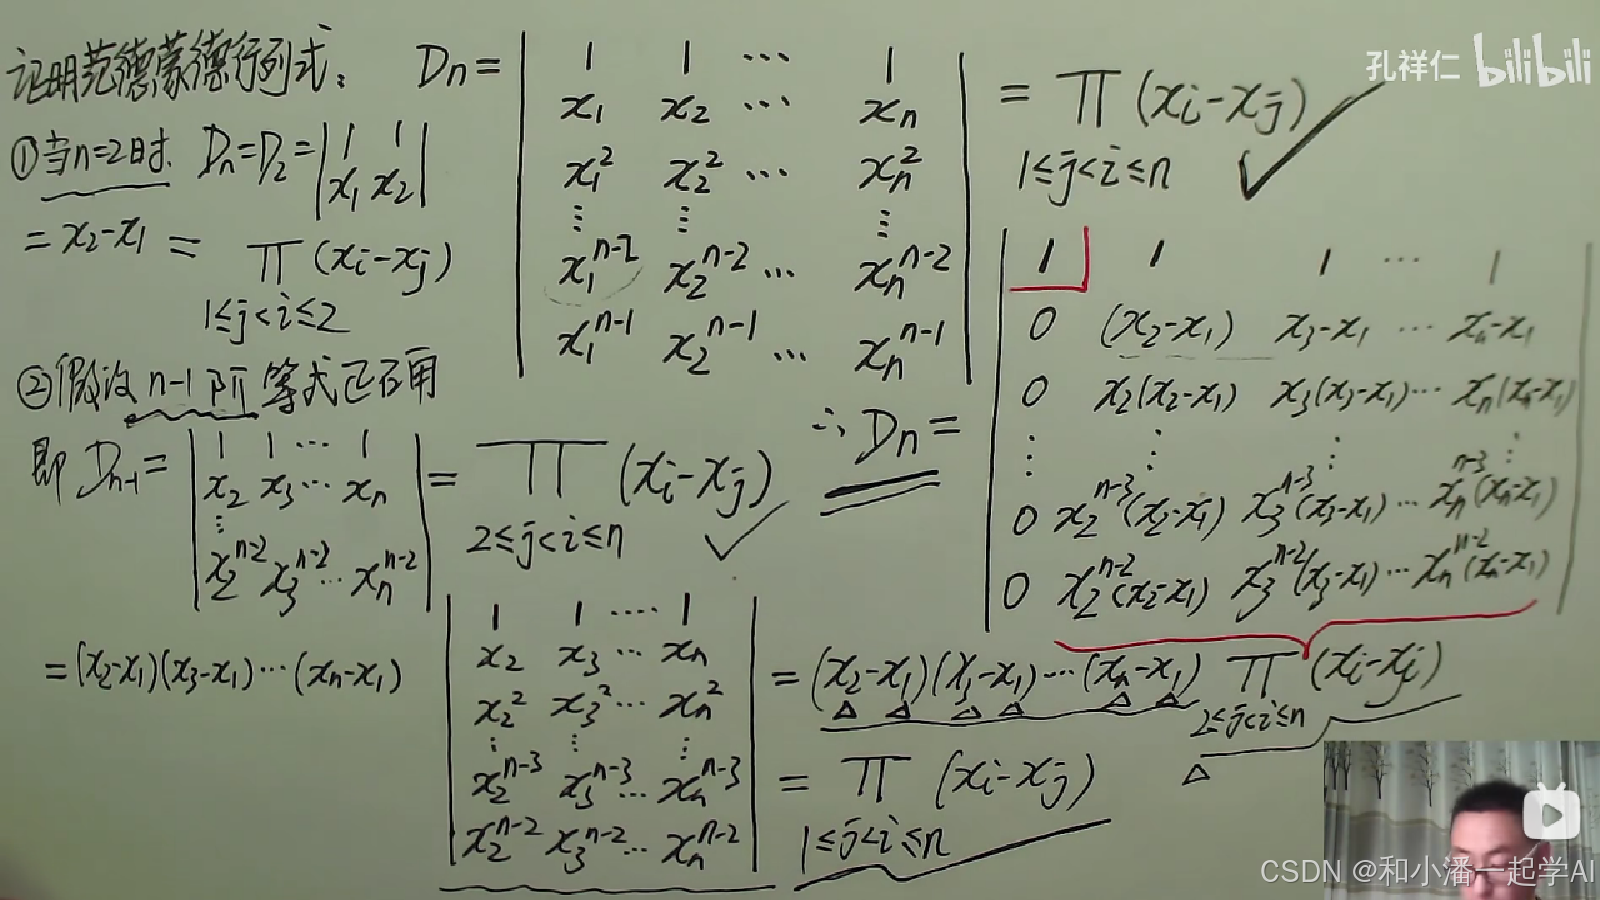 证明范德蒙德行列式：
Dn = | 1 1 ⋯ 1 |
| x₁ x₂ ⋯ xₙ |
| x₁² x₂² ⋯ xₙ² |
| ⋮ ⋮ ⋮ |
| x₁ⁿ⁻² x₂ⁿ⁻² ⋯ xₙⁿ⁻² |
| x₁ⁿ⁻¹ x₂ⁿ⁻¹ ⋯ xₙⁿ⁻¹ |
= ∏ (xᵢ-xⱼ)
1≤j<i≤n
孔祥仁 bilibili
①当n=2时. Dn=D₂= | 1 1 |
| x₁ x₂ |
= x₂-x₁ = ∏ (xᵢ-xⱼ)
1≤j<i≤2
②假设n-1阶等式正确
即 Dn-1 = | 1 1 ⋯ 1 |
| x₂ x₃ ⋯ xₙ |
| ⋮ |
| x₂ⁿ⁻² x₃ⁿ⁻² ⋯ xₙⁿ⁻² |
= ∏ (xᵢ-xⱼ)
2≤j<i≤n
∴ Dn = | 1 1 1 ⋯ 1 |
| 0 (x₂-x₁) x₃-x₁ ⋯ xₙ-x₁ |
| 0 x₂(x₂-x₁) x₃(x₃-x₁) ⋯ xₙ(xₙ-x₁) |
| ⋮ ⋮ ⋮ ⋮ |
| 0 x₂ⁿ⁻³(x₂-x₁) x₃ⁿ⁻³(x₃-x₁) ⋯ xₙⁿ⁻³(xₙ-x₁) |
| 0 x₂ⁿ⁻²(x₂-x₁) x₃ⁿ⁻²(x₃-x₁) ⋯ xₙⁿ⁻²(xₙ-x₁) |
= (x₂-x₁)(x₃-x₁)⋯(xₙ-x₁) | 1 1 ⋯⋅ 1 |
| x₂ x₃ ⋯ xₙ |
| x₂² x₃² ⋯ xₙ² |
| ⋮ ⋮ ⋮ |
| x₂ⁿ⁻³ x₃ⁿ⁻³ ⋯ xₙⁿ⁻³ |
| x₂ⁿ⁻² x₃ⁿ⁻² ⋯ xₙⁿ⁻² |
= (x₂-x₁)(x₃-x₁)⋯(xₙ-x₁) ∏ (xᵢ-xⱼ)
2≤j<i≤n
= ∏ (xᵢ-xⱼ)
1≤j<i≤n
CSDN @和小潘一起学AI